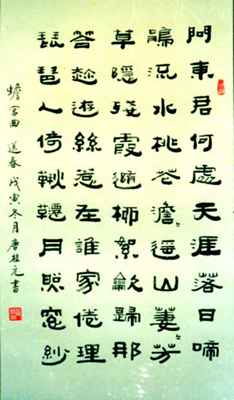 問東君何處天涯落日啼
鵑流水桃花澹〻遥山萋〻芳
草隱〻殘霞隨柳絮龡歸那
答趂遊絲惹在誰家倦理
琵琶人倚鞦韆月照窗紗
蟾宮曲 送春 戊寅冬月 唐桂元書